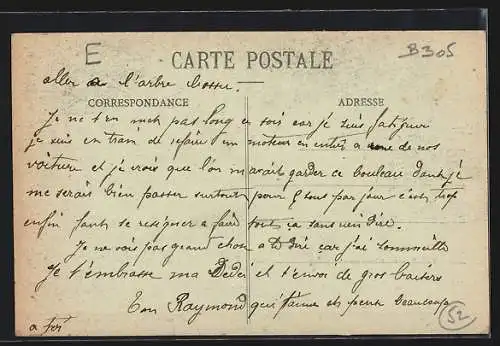 E
B305
CARTE POSTALE
aller a l'arbre bossu.
CORRESPONDANCE
ADRESSE
Je ne t'en met pas long ce soir car je suis fatiguer
je suis en train de refaire un moteur en entier a une de nos
voiture et je crois que l'on m'avait garder ce bouleau dont je
me serais bien passer surtout pour 8 sous par jour c'est trop
enfin faut se resigner a faire tout ça sans rien dire.
Je ne vois pas grand chose a te dire car j'ai sommeille
Je t'embrasse ma Dédé et t'envoi de gros baisers
Ton Raymond qui t'aime et pense beaucoup
a toi
52